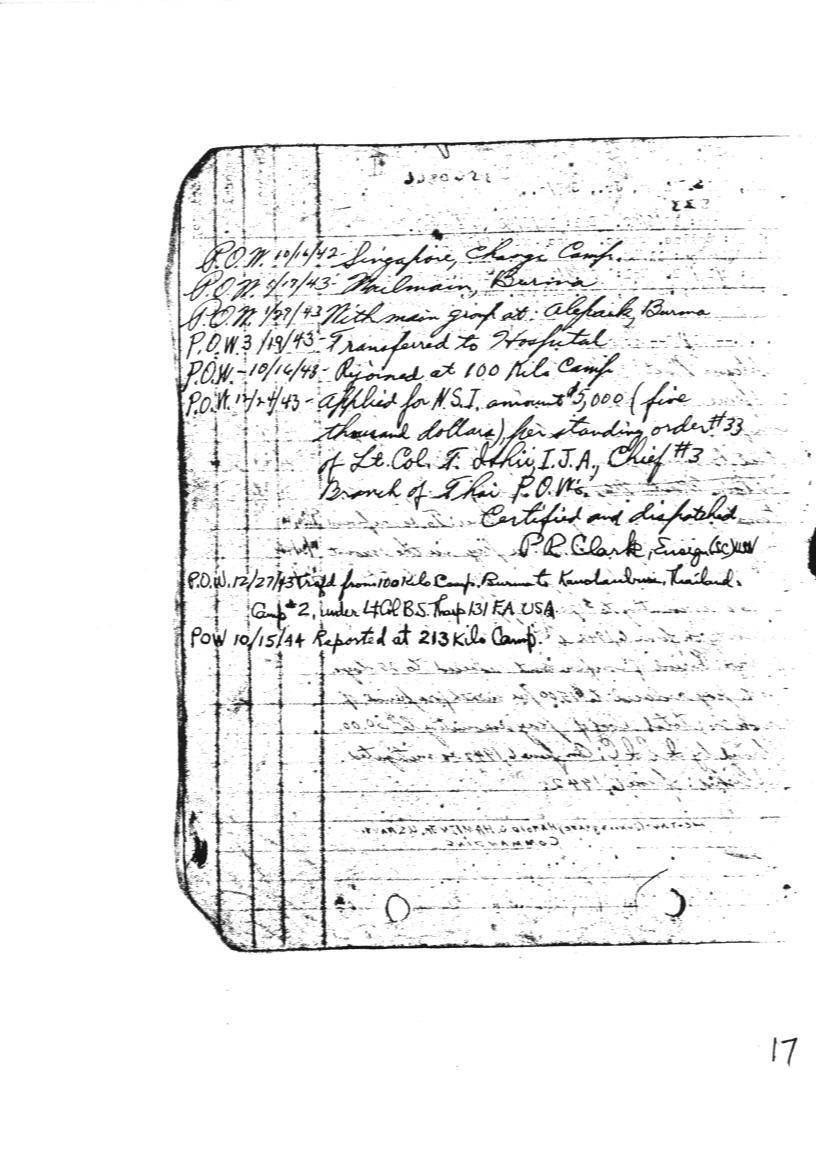 P.O.W. 10/16/42 - Singapore, Changi Camp.
P.O.W. 1/17/43 - Moilmain, Burma
P.O.W. 1/27/43 With main group at Alepauk, Burma
P.O.W. 3/19/43 - Transferred to Hospital
P.O.W. - 10/16/43 - Rejoined at 100 Kilo Camp
P.O.W. 12/24/43 - Applied for N.S.I. amount $5,000 (five
thousand dollars), per standing order #33
of Lt. Col. F. Ishii, I.J.A., Chief #3
Branch of Thai P.O.W's.
Certified and dispatched
P. R. Clark, Ensign (SC) USN
P.O.W. 12/27/43 Trsf'd from 100 Kilo Camp, Burma to Thailand.
Camp #2, under Lt Col B.S. Tharp 131 F.A. USA
POW 10/15/44 Reported at 213 Kilo Camp.
17